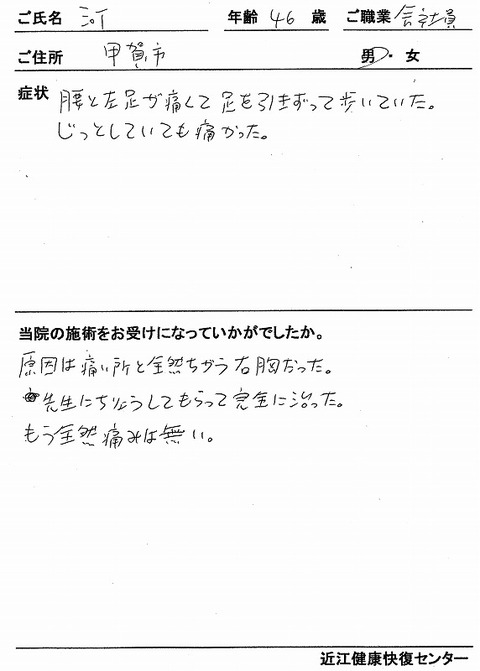 ご氏名 河 年齢 46 歳 ご職業 会社員
ご住所 甲賀市 男・女
症状 腰と左足が痛くて足を引きずって歩いていた。
じっとしていても痛かった。
当院の施術をお受けになっていかがでしたか。
原因は痛い所と全然ちがう右胸だった。
先生にちりょうしてもらって完全に治った。
もう全然痛みは無い。
近江健康快復センター